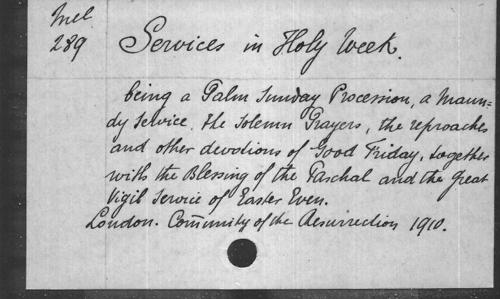 Mel
289
Services in Holy Week.
being a Palm Sunday Procession, a Maun-
dy Service. The Solemn Prayers, the reproaches
and other devotions of Good Friday, together
with the Blessing of the Paschal and the great
Vigil Service of Easter Even.
London. Community of the Resurrection 1910.